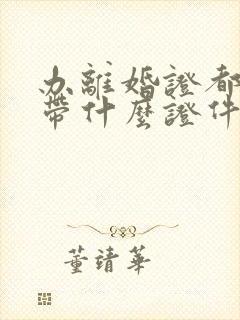 办離婚證都
帶什麼證件
董靖華